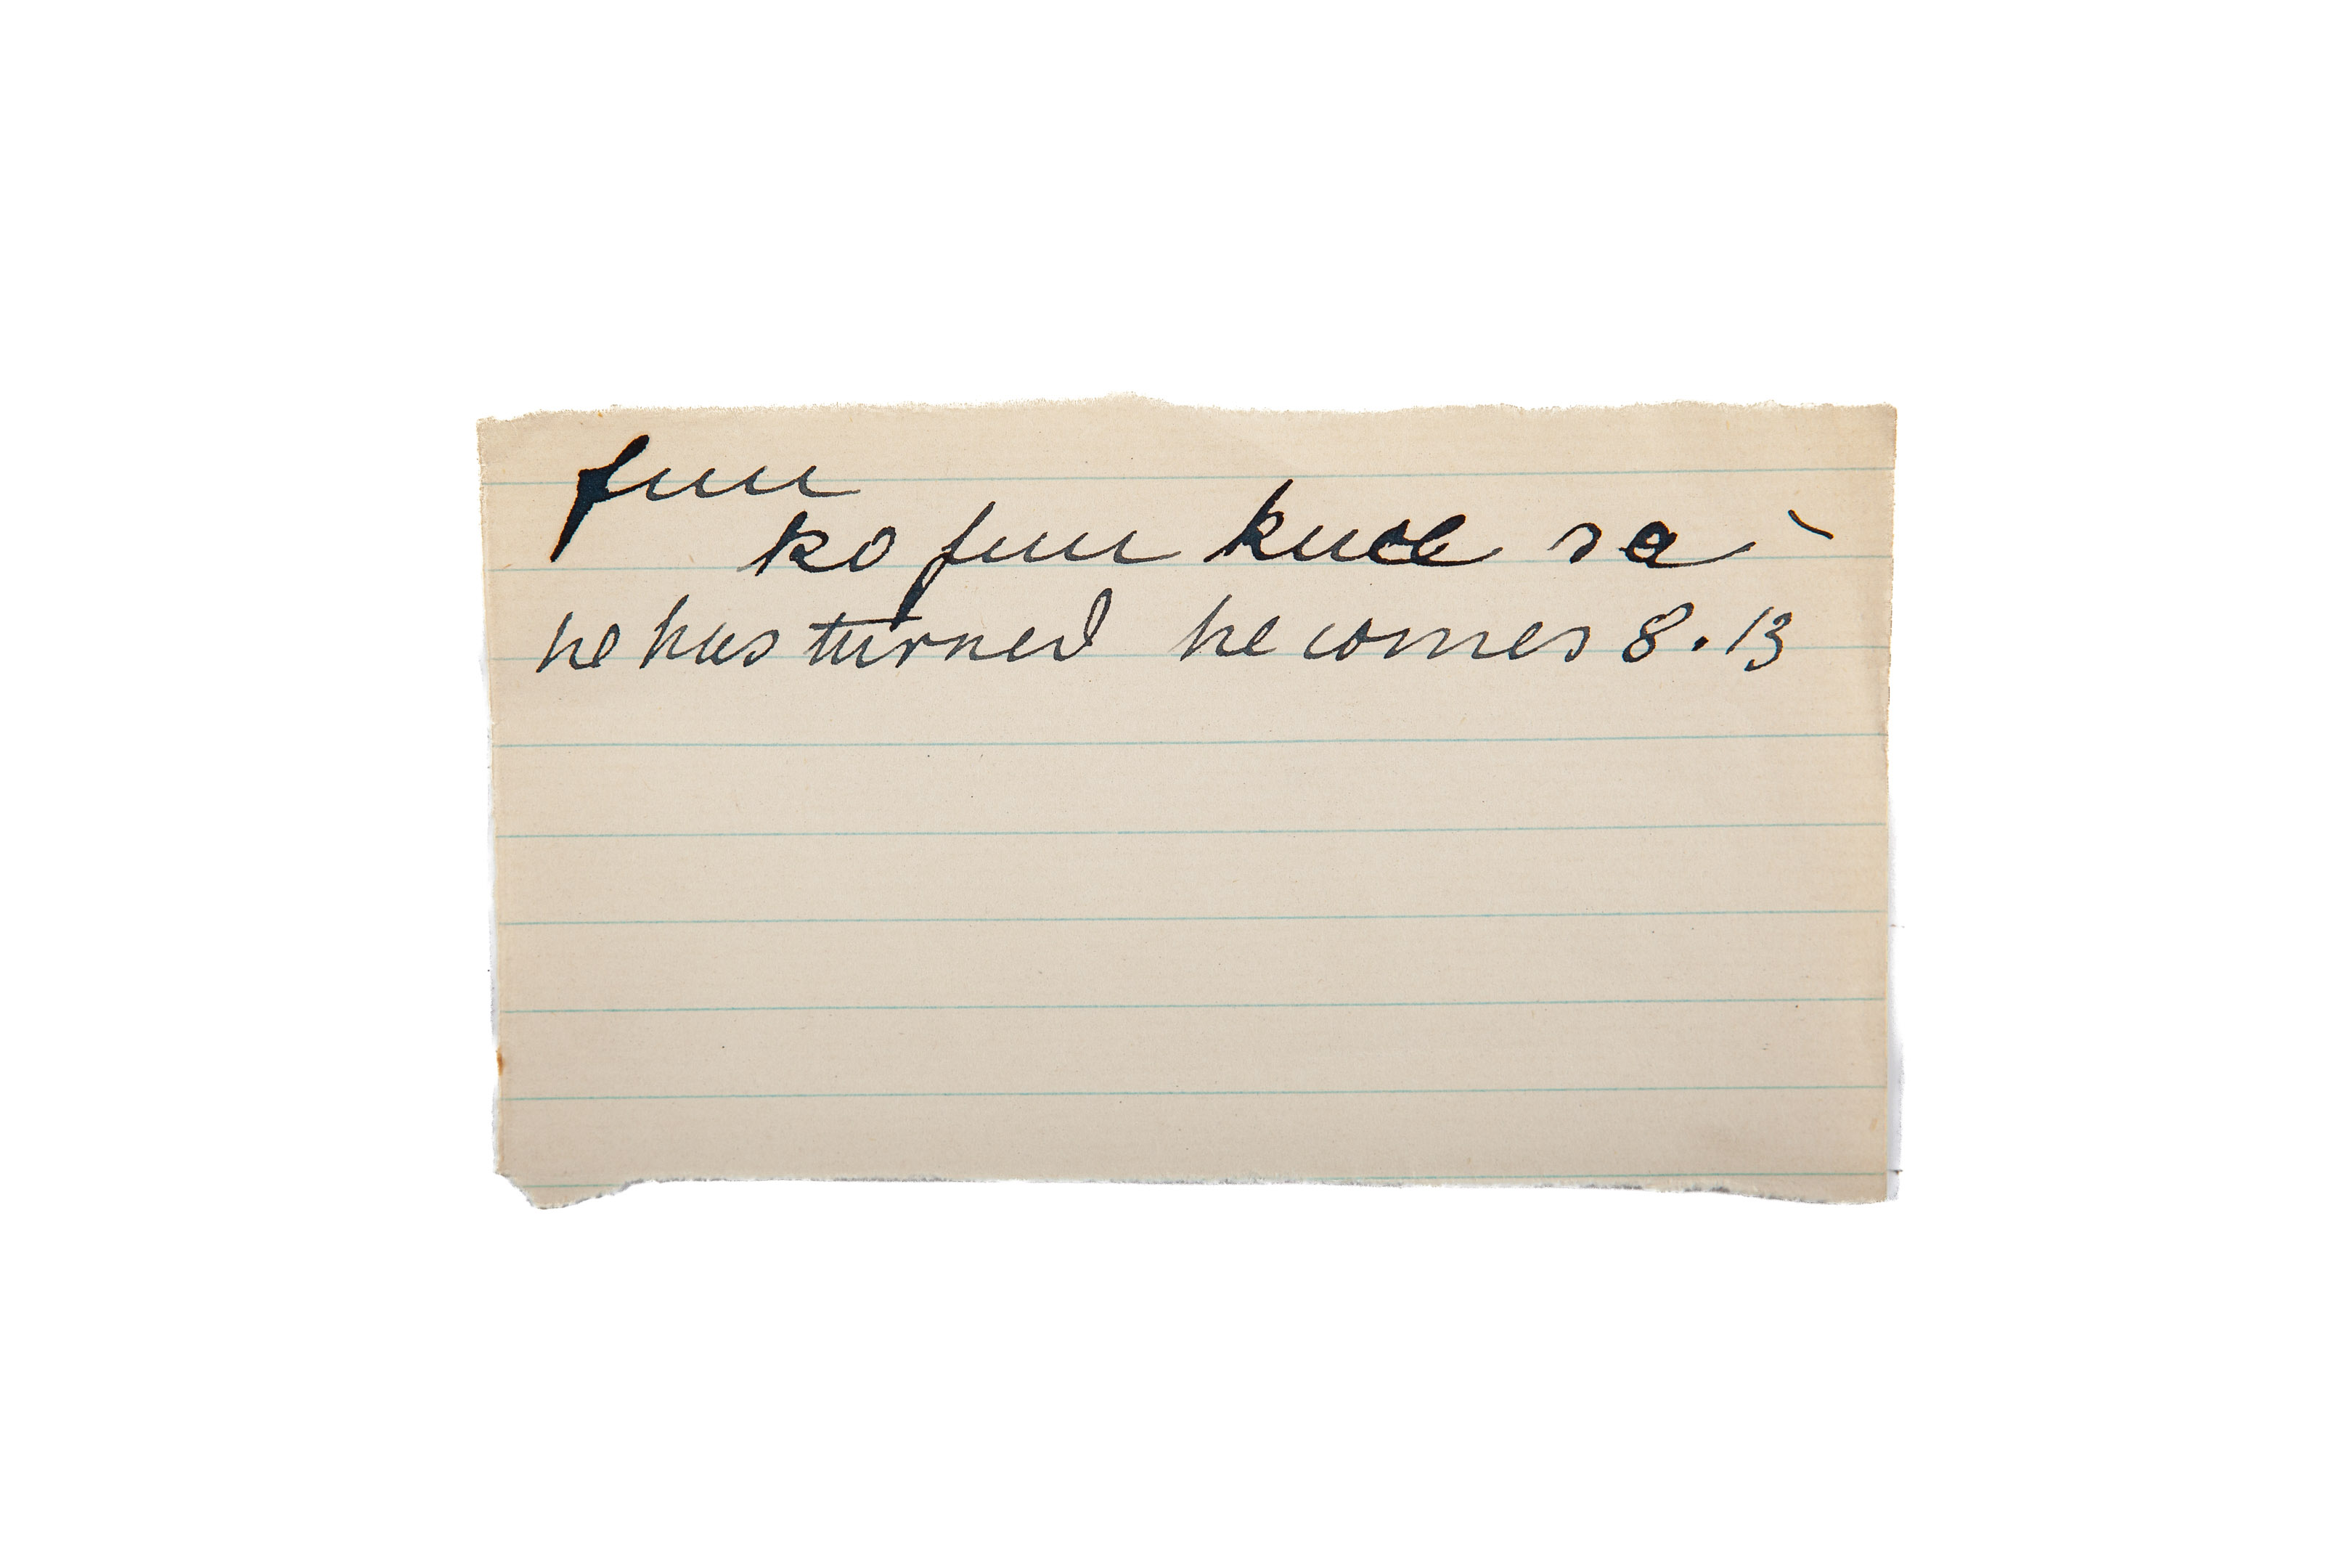 fun
ko fun kuce sa
he has turned he comes 8.13